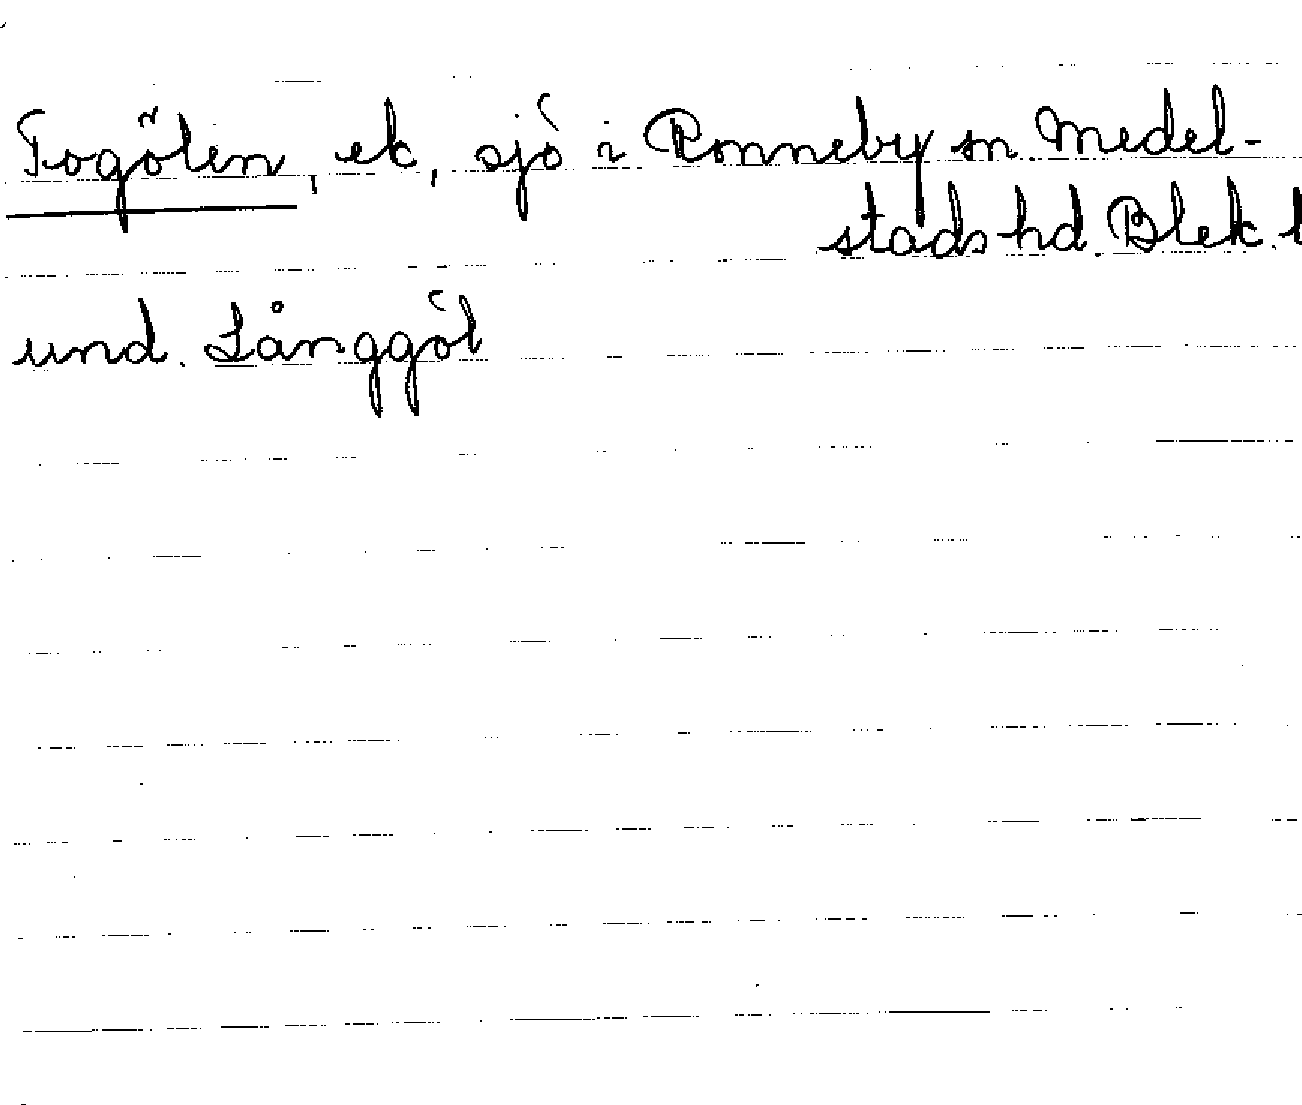 Togölen, ek, sjö i Ronneby sn Medel-
stads hd. Blek. l
und. Långgöl